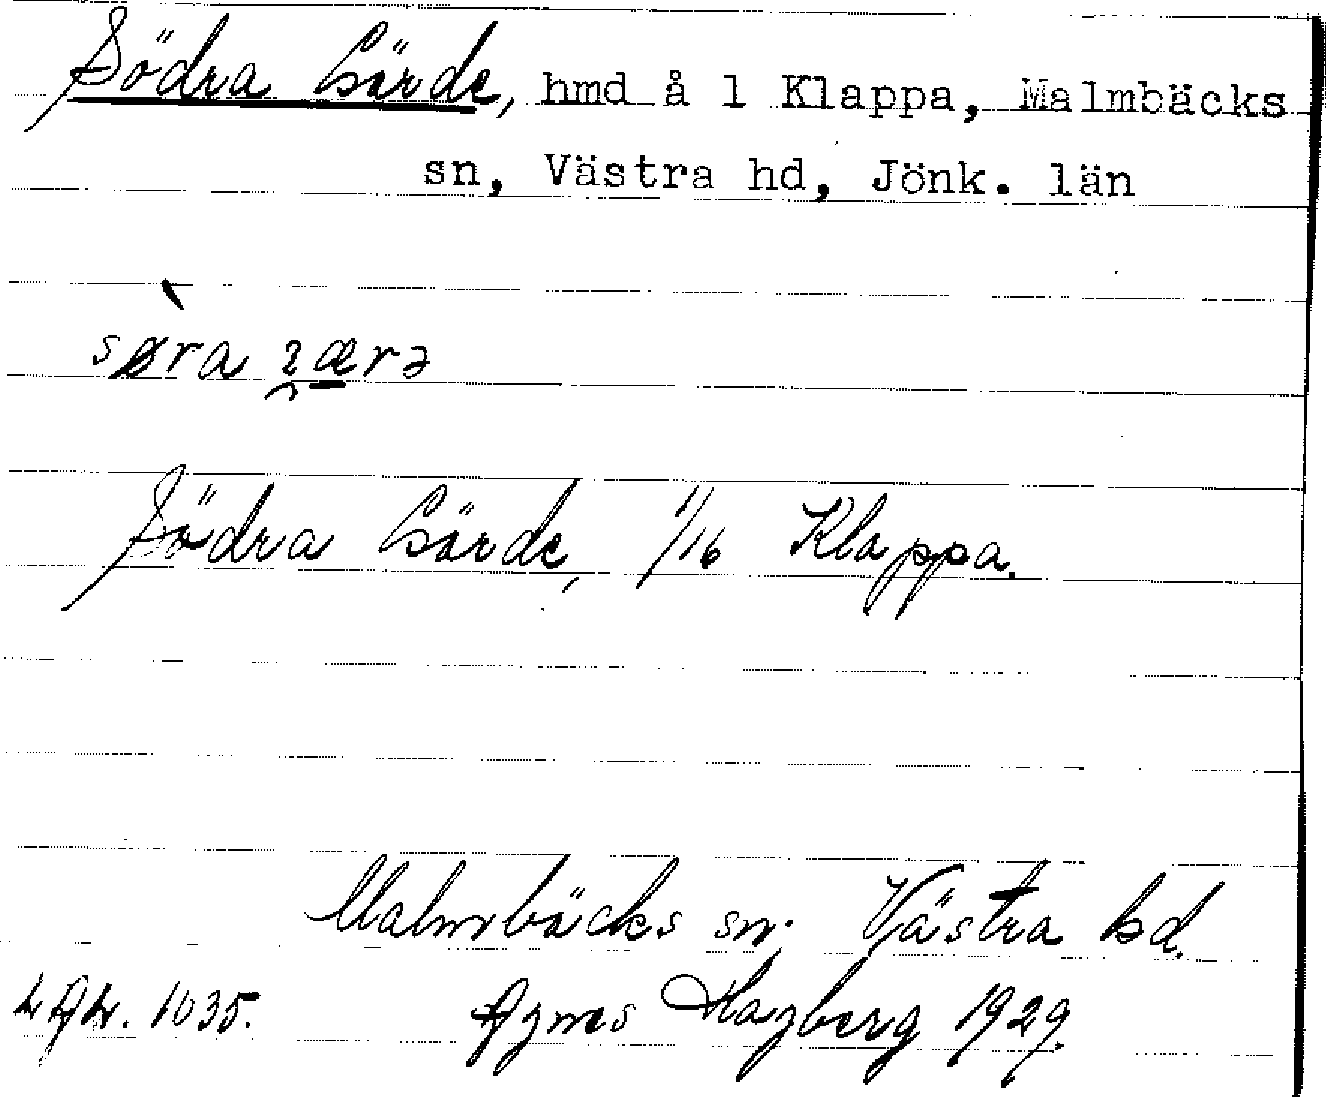 Södra Gärde, hmd å 1 Klappa, Malmbäcks
sn, Västra hd, Jönk. län
Södra Gärde, 1/16 Klappa.
Malmbäcks sn. Västra hd.
1035. Agnes Hagberg 1929.